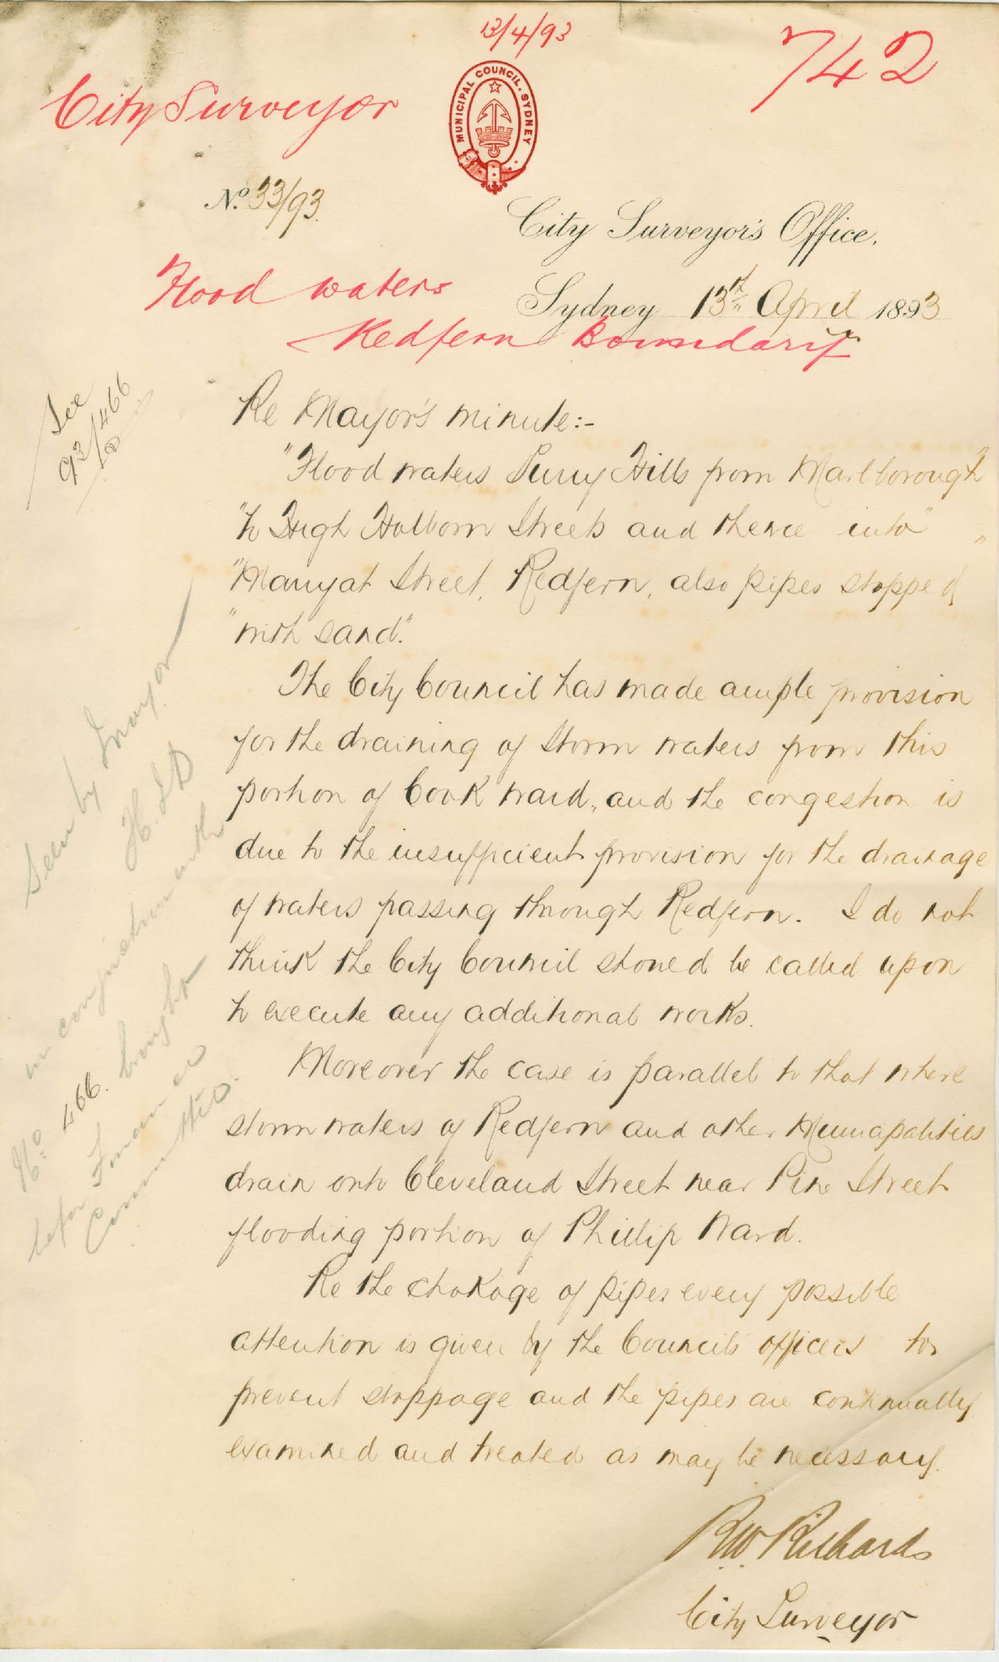 13/4/93
742
City Surveyor
MUNICIPAL COUNCIL. SYDNEY
No. 33/93.
City Surveyor's Office.
Flood waters
Sydney 13th April 1893
Redfern Boundary
See
93/466
Re Mayor's minute:-
"Flood waters Surry Hills from Marlborough"
"to High Holborn Streets and thence into"
"Marryat Street, Redfern, also pipes stopped
"with sand".
The City Council has made ample provision
for the draining of Storm waters from this
portion of Cook Ward, and the congestion is
due to the insufficient provision for the drainage
of waters passing through Redfern. I do not
think the City Council should be called upon
to execute any additional works.
Moreover the case is parallel to that where
storm waters of Redfern and other Municipalities
drain onto Cleveland Street near Pine Street
flooding portion of Phillip Ward.
Re the chokage of pipes every possible
attention is given by the Council's officers to
prevent stoppage and the pipes are continually
examined and treated as may be necessary.
R.W. Richards
City Surveyor
Seen by Mayor
H.S.D
No. in conjunction with
466. brought
before Finance
Committee.